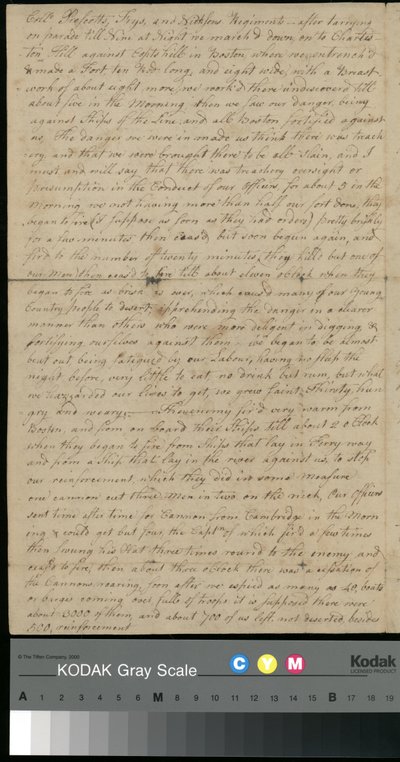 Coll.s Prescotts, Frys, and Nicksons Regiments — after tarrying
on parade till Nine at Night we march'd down on to Charles
ton Hill against Copts hill in Boston where we entrench'd
& made a Fort ten Rod long, and eight wide, with a Breast
work of about eight more, we work'd there undiscoverd till
about five in the Morning, then we saw our danger, being
against Ships of the Line, and all Boston fortified against
us. The danger we were in made us think there was treach
ery, and that we were brought there to be all Slain, and I
must and will say that there was treachery oversight or
presumption in the Conduct of our Officers, for about 5 in the
Morning we not having more than half our fort done, they
began to fire (I suppose as soon as they had orders) pretty briskly
for a few minutes then ceas'd, but soon begun again, and
fird to the number of twenty minutes, they killd but one of
our Men then ceas'd to fire till about eleven oClock when they
began to fire as brisk as ever, which caus'd many of our young
Country people to desert, apprehending the danger in a clearer
manner than others who were more diligent in digging, &
fortifying ourselves against them. we began to be almost
beat out being fatigued by our Labour, having no sleep the
night before, very little to eat, no drink but rum, but what
we hazzarded our lives to get, we grew faint, Thirsty, hun
gry and weary.— The enemy fir'd very warm from
Boston, and from on board their Ships till about 2 o Clock
when they began to fire from Ships that lay in Ferry way
and from a Ship that lay in the river against us, to stop
our reinforcement, which they did in some measure
one cannon cut three Men in two on the neck, Our Officers
sent time after time for Cannon from Cambridge in the Morn
ing & could get but four, the Capt.n of which fir'd a few times
then swung his Hat three times round to the enemy and
ceas'd to fire, then about three oClock there was a cessation of
the Cannons roaring, soon after we espied as many as 40 boats
or barges coming over full of troops it is supposed there were
about 3000 of them, and about 700 of us left not deserted, besides
500 reinforcement
© The Tiffen Company, 2000
KODAK Gray Scale
C Y M
Kodak
LICENSED PRODUCT
A 1 2 3 4 5 6 M 8 9 10 11 12 13 14 15 B 17 18 19